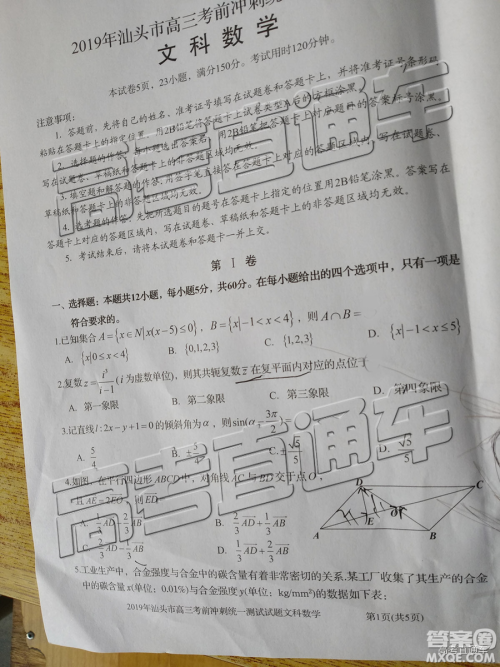 2019年汕头市高三考前冲刺统
文科数学
本试卷5页，23小题，满分150分。考试用时120分钟。
注意事项：
1. 答题前，先将自己的姓名、准考证号填写在试题卷和答题卡上，并将准考证号条形码
粘贴在答题卡上的指定位置。用2B铅笔将答题卡上试卷类型A后的方框涂黑。
2. 选择题的作答：用2B铅笔把答题卡上对应题目的答案标号涂黑，
写在试题卷、草稿纸和答题卡上的非答题区域均无效。
3. 填空题和解答题的作答：用签字笔直接答在答题卡上对应的答题区域内，写在试题卷、
草稿纸和答题卡上的非答题区域均无效。
4. 选考题的作答：先把所选题目的题号在答题卡上指定的位置用2B铅笔涂黑。答案写在
答题卡上对应的答题区域内，写在试题卷、草稿纸和答题卡上的非答题区域均无效。
5. 考试结束后，请将本试题卷和答题卡一并上交。
第 I 卷
一、选择题：本题共12小题，每小题5分，共60分。在每小题给出的四个选项中，只有一项是
符合要求的。
1.已知集合A={x∈N|x(x-5)≤0}，B={x|-1<x<4}，则A∩B=
A. {x|0≤x<4} B. {0,1,2,3} C. {1,2,3} D. {x|-1<x≤5}
2.复数z= /(i-1)(i为虚数单位)，则其共轭复数z̄在复平面内对应的点位于
A. 第一象限 B. 第二象限 C. 第三象限 D. 第四象限
3.记直线l:2x-y+1=0的倾斜角为α，则sin(α-3π/2)=
A. B. C. ±√5/5 D. √5/5
4.如图，在平行四边形ABCD中，对角线AC与BD交于点O，
且AE=2EO，则ED=
A. 1/3 AD - 2/3 AB B. 2/3 AD + 1/3 AB
C. 2/3 AD - 1/3 AB D. 1/3 AD + 2/3 AB
D C E A B
5.工业生产中，合金强度与合金中的碳含量有着非常密切的关系.某工厂收集了其生产的合金
中的碳含量x(单位：0.01%)与合金强度y(单位：kg/mm²)的数据如下表：
2019年汕头市高三考前冲刺统一测试试题文科数学 第1页(共5页)
高考直通车
高考直通车
答案圈
MXQE.COM